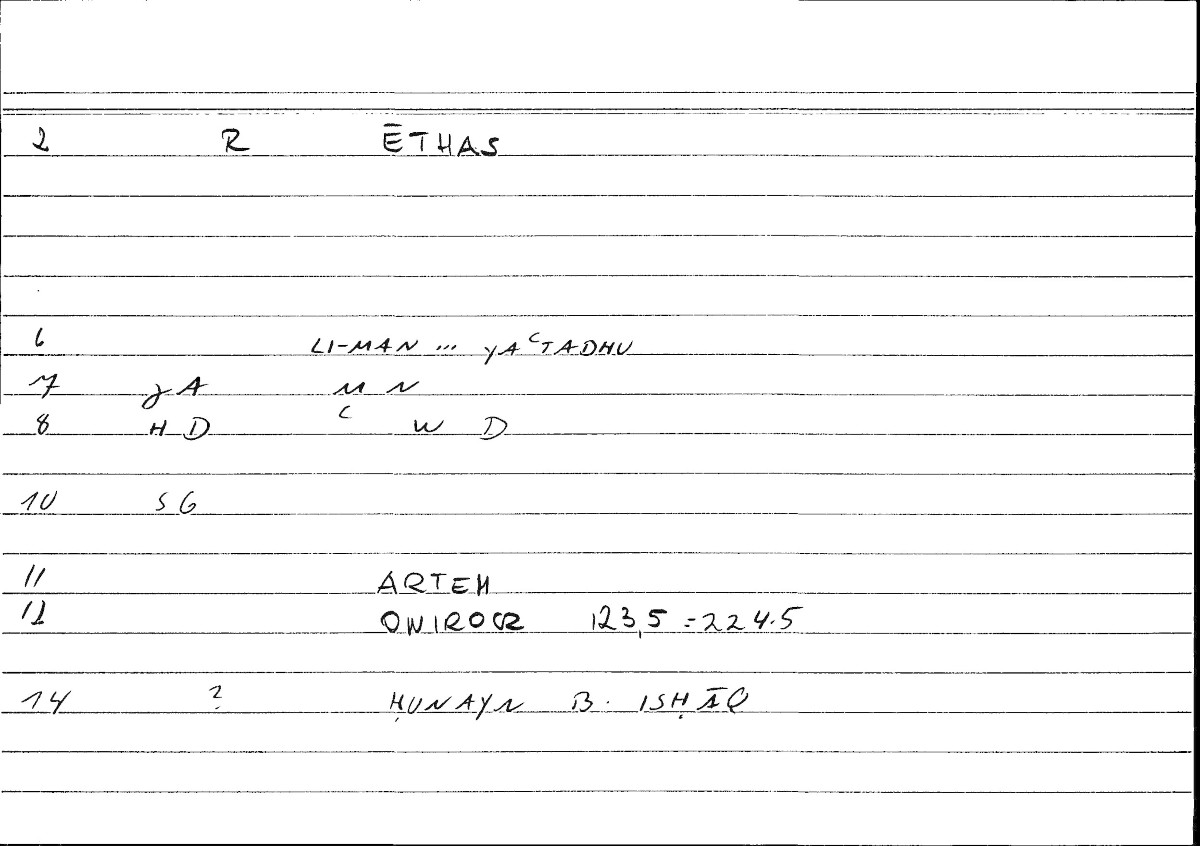 2 R ĒTHAS
6 LI-MAN ... YAʿTADHU
7 YA M N
8 HD ʿ W D
10 SG
11 ARTEM
12 ONIROCR 123,5 = 224.5
14 ? ḤUNAYN B. ISḤĀQ